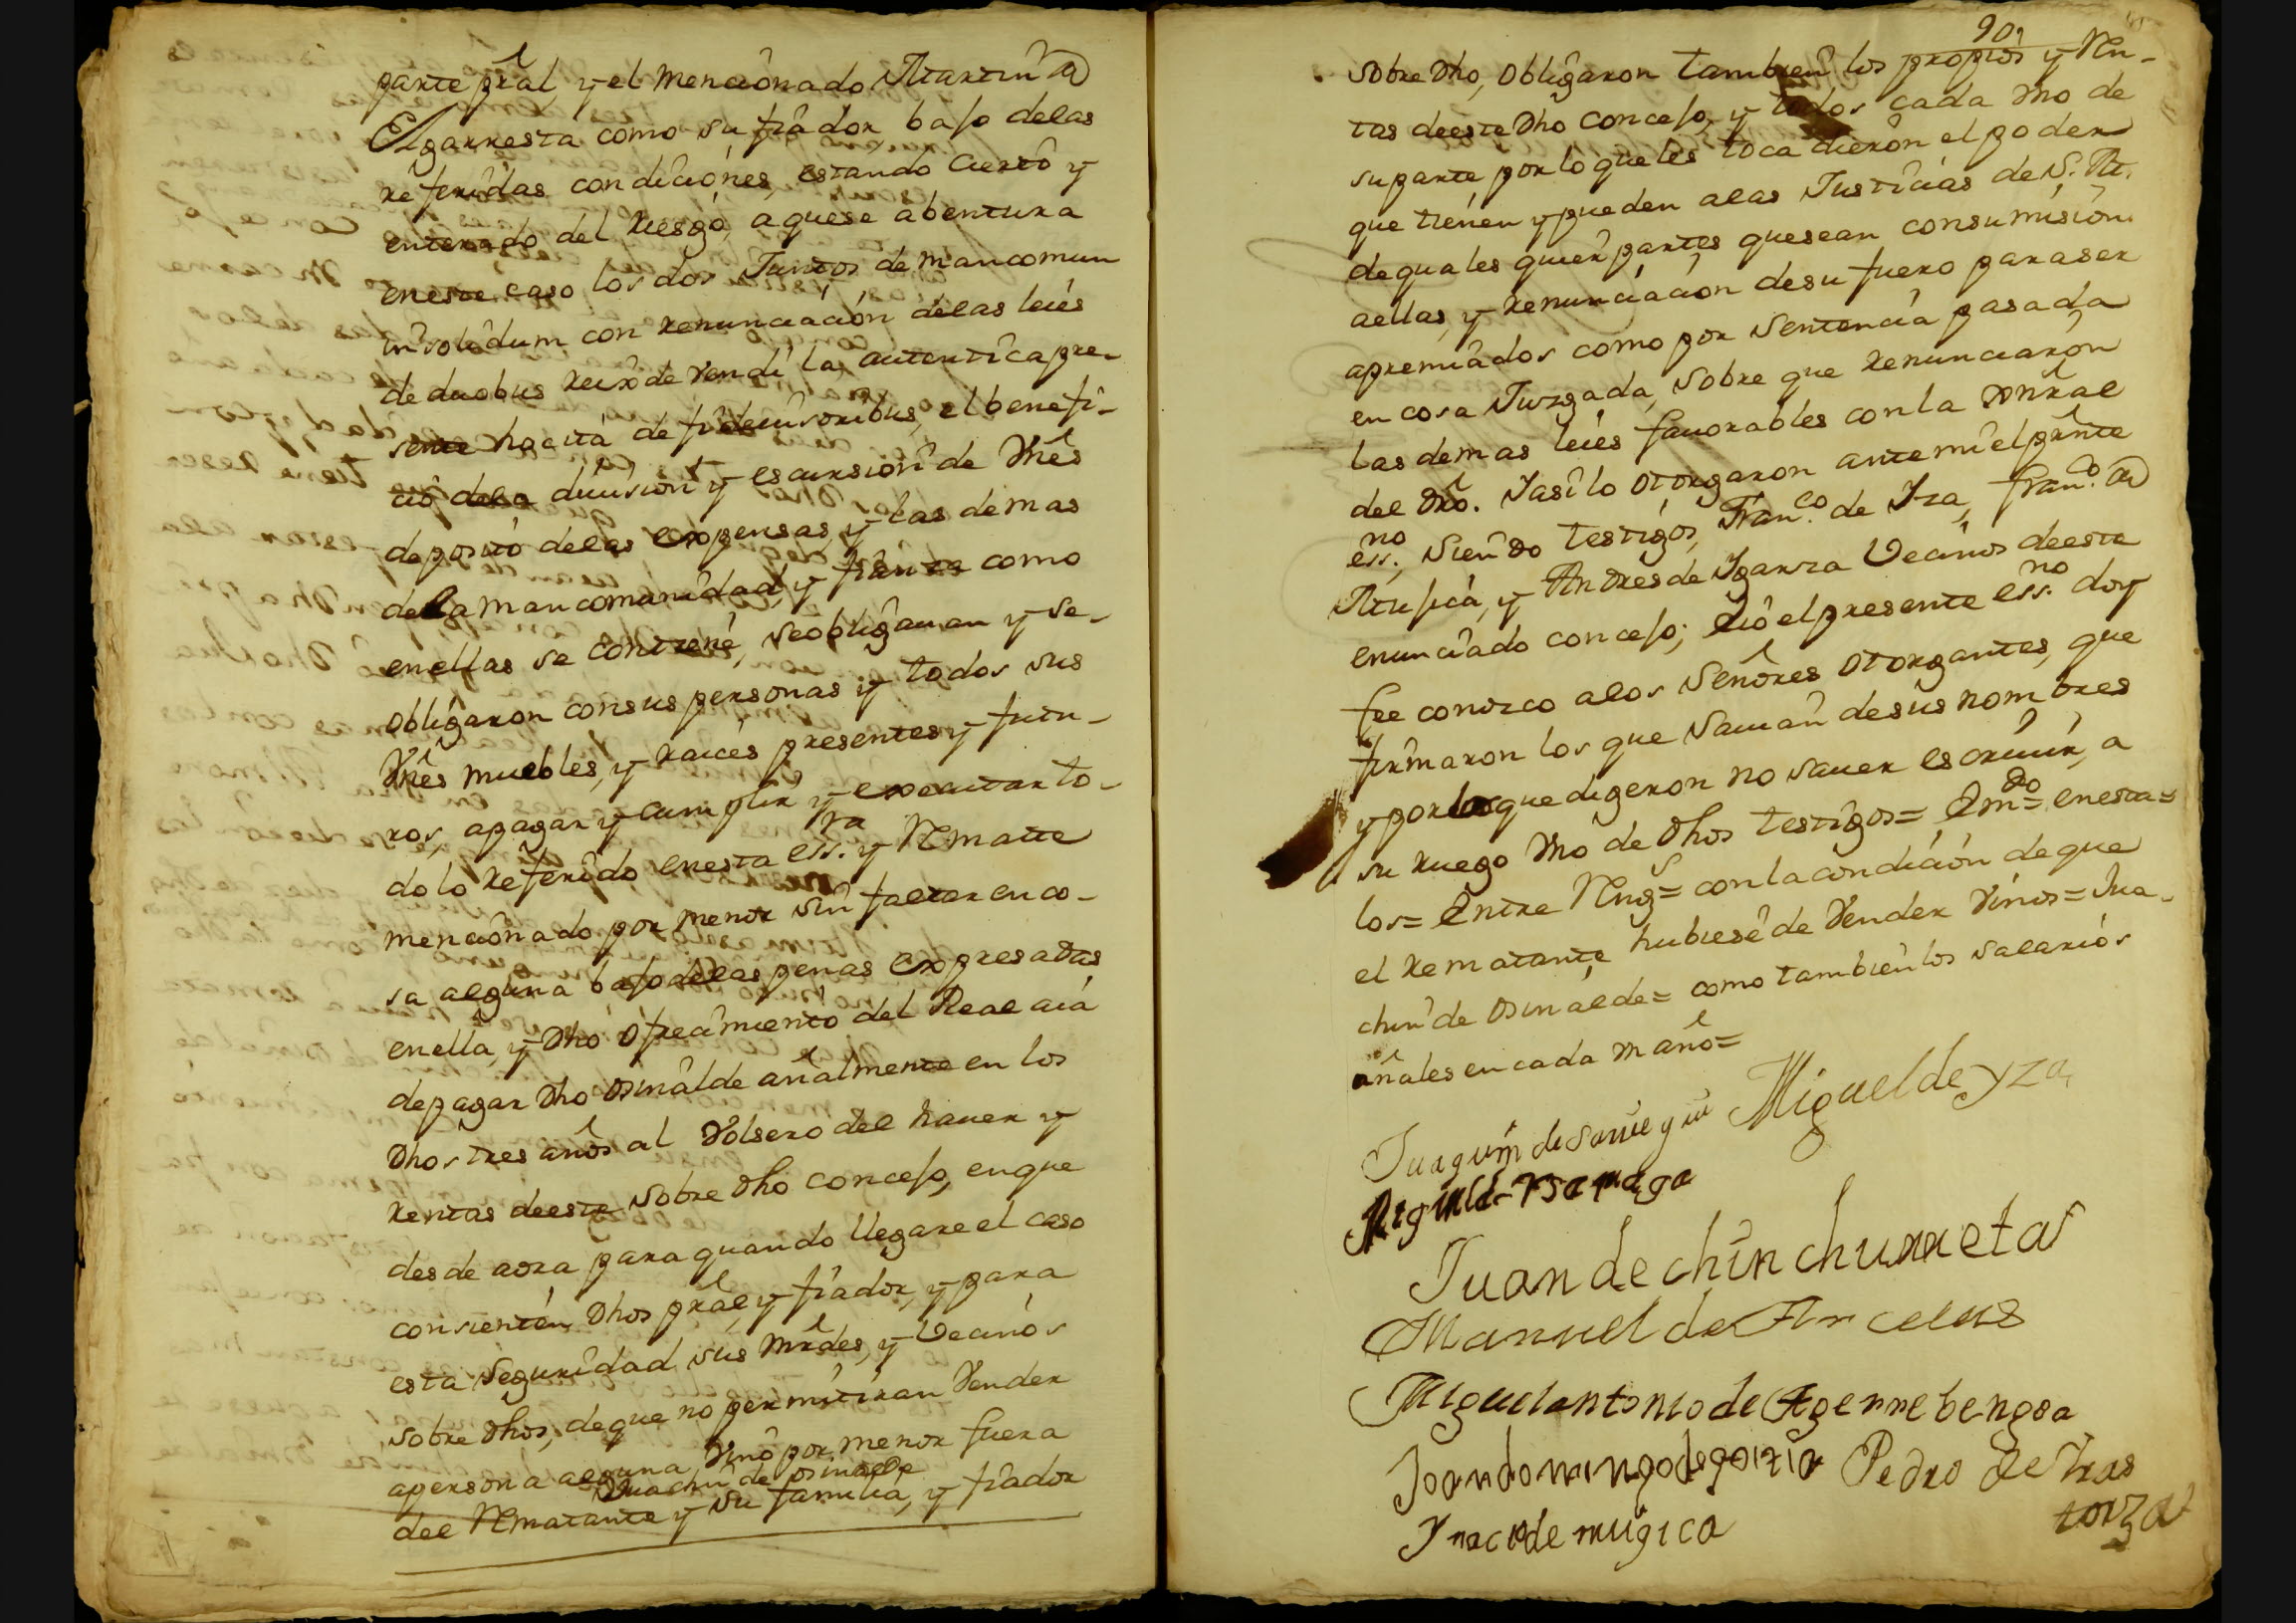 parte prâl, y el mencionado Martin de
Elgarresta como su fiador bajo delas
referidas condiciones, estando cierto y
enterado del riesgo, aquese abentura
eneste caso los dos Juntos de mancomun
insolidum con renunciacion delas leies
de duobus reix de vendi la autentica pre-
sente hocita de fideiusoribus, el benefi-
cio dela diuision y escursion de vnes
deposito delas expensas, y las demas
dela mancomunidad, y fianza como
enellas se contiene, seobligauan y se-
obligaron consus personas y todos sus
vnes muebles, y raices presentes y futu-
ros, apagar y cumplir y executar to-
dolo referido enesta essra. y Rematte
mencionado por menor sin faltar en co-
sa alguna bajo delas penas expresadas
enella, y dho ofrecimiento del Real aia
depagar dho osinalde añalmente en los
dhos tres años al volsero del hauer y
rentas deeste sobre dho concejo, en que
desde aora para quando llegare el caso
consienten dhos prâl, y fiador, y para
esta seguridad sus mrdes, y vecinos
sobre dhos, deque no permitiran vender
apersona alguna vino por menor fuera
Juachin de osinalde
del Rematante y su familia, y fiador
90
sobre dho, obligaron tambien los propios y Ren-
tas deeste dho concejo, y todos cada vno de
suparte por lo que les toca dieron el poder
que tienen y pueden alas Justicias de S. M.
de quales quier partes quesean consumision
aellas, y renunciacion desu fuero paraser
apremiados como por sentencia pasada
en cosa Juzgada, sobre que renunciaron
las demas leies fauorables con la gnral
del dro. Iasilo otorgaron antemi el prnte
essno. siendo testigos, Franco. de Iza, Franco. de
Mujica, y Andres de Igarza vecinos deeste
enunciado concejo; eio el presente essno. doy
fee conozco alos señores otorgantes, que
firmaron los que sauian desus nombres
y por los que digeron no sauer escriuir, a
su ruego vno de dhos testigos= Emdo= enesta=
los= Entre Rengs= con la condicion de que
el rematante hubiese de vender vinos= Jua-
chin de osinalde= como tambien los salarios
añales en cada vn año=
Juaquin de Sarriegui Miguel de yza
Juan de chinchurreta
Manuel de Arcelus
Miguel antonio de Agerrebengoa
Joan domingo de goizia Pedro de Iras
torza
Ynacio de mugica